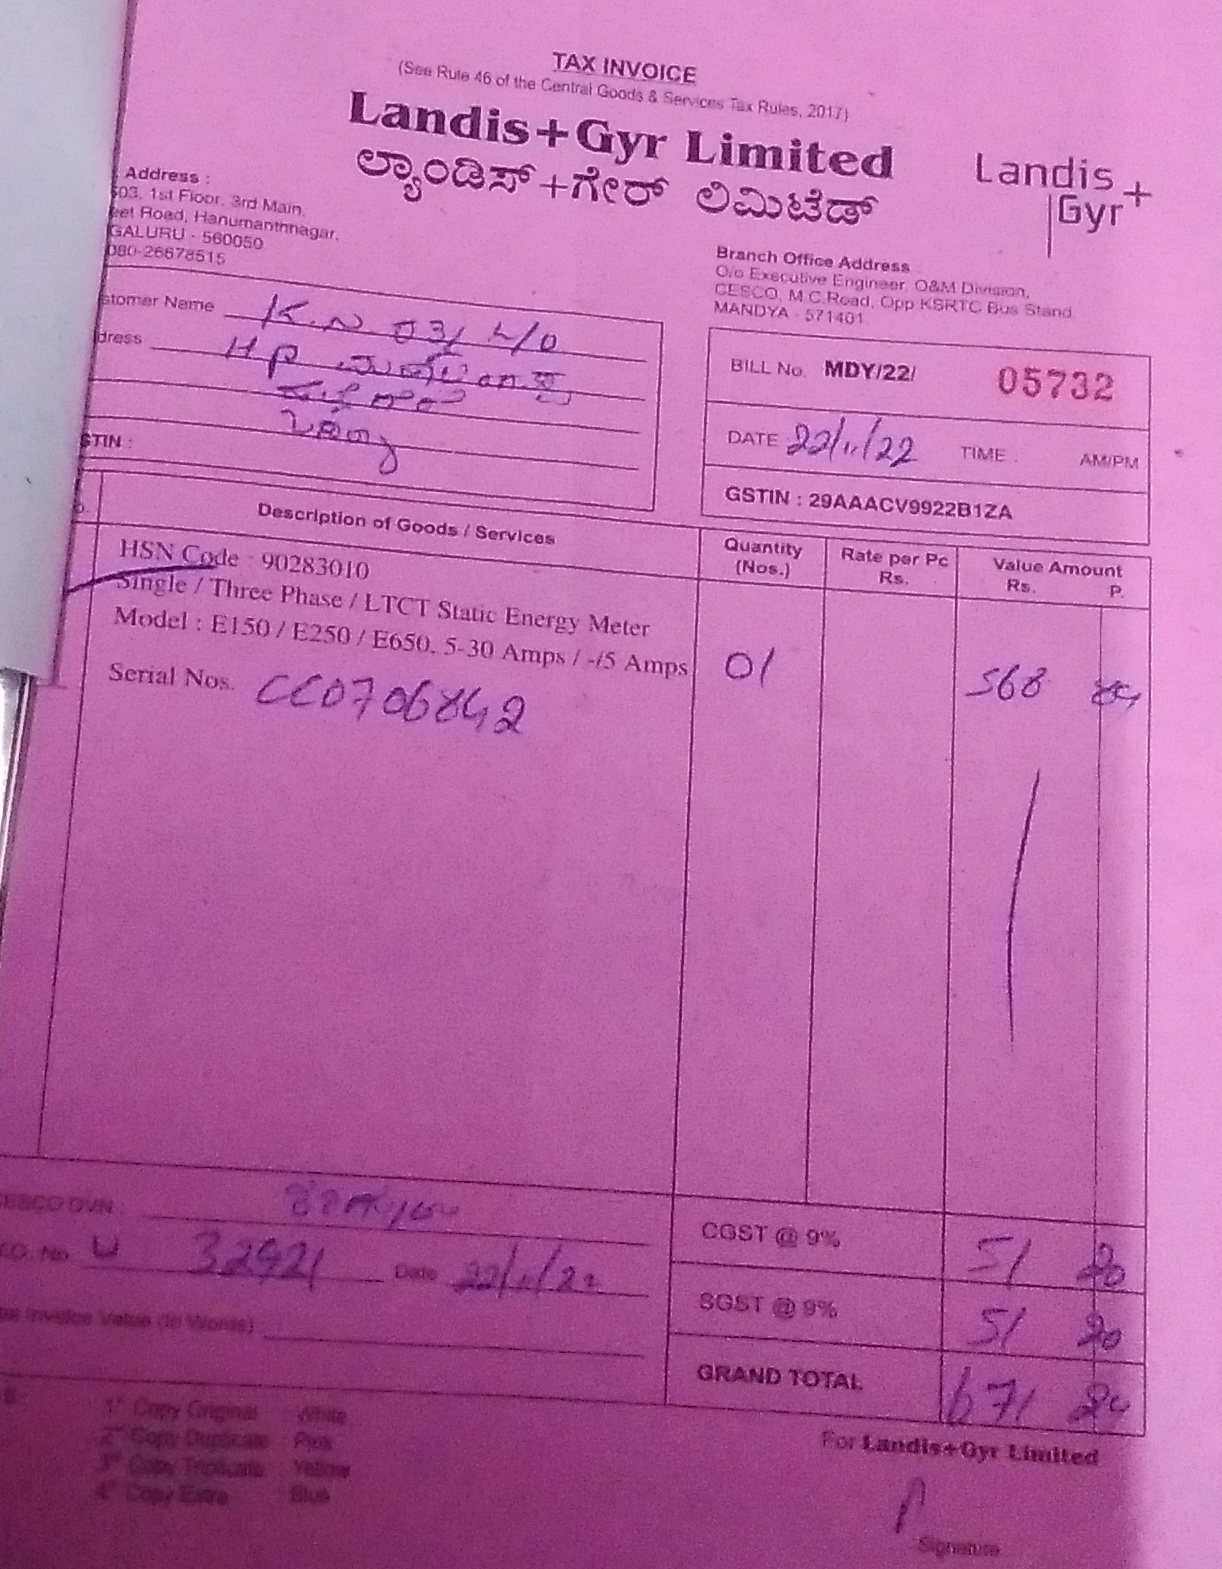 TAX INVOICE
(See Rule 46 of the Central Goods & Services Tax Rules, 2017)
Landis+Gyr Limited
ಲ್ಯಾಂಡಿಸ್+ಗೇರ್ ಲಿಮಿಟೆಡ್
Landis
Gyr+
Address :
03, 1st Floor, 3rd Main,
eet Road, Hanumanthnagar,
GALURU - 560050
080-26678515
Branch Office Address
O/o Executive Engineer, O&M Division,
CESCO, M.C.Road, Opp KSRTC Bus Stand
MANDYA - 571401
stomer Name K.N
dress H P
STIN :
BILL No. MDY/22/ 05732
DATE 22/11/22 TIME : AM/PM
GSTIN : 29AAACV9922B1ZA
Description of Goods / Services
Quantity (Nos.)
Rate per Pc Rs.
Value Amount Rs. P.
HSN Code - 90283010
Single / Three Phase / LTCT Static Energy Meter
Model : E150 / E250 / E650, 5-30 Amps / -/5 Amps 01 568 84
Serial Nos. CC0706842
ESCO DVN :
No. U 32921 Date 22/11/22
Invoice Value (in Words)
CGST @ 9% 51 20
SGST @ 9% 51 20
GRAND TOTAL 671 24
1st Copy Original White
2nd Copy Duplicate Pink
3rd Copy Triplicate Yellow
4th Copy Extra Blue
For Landis+Gyr Limited
Signature